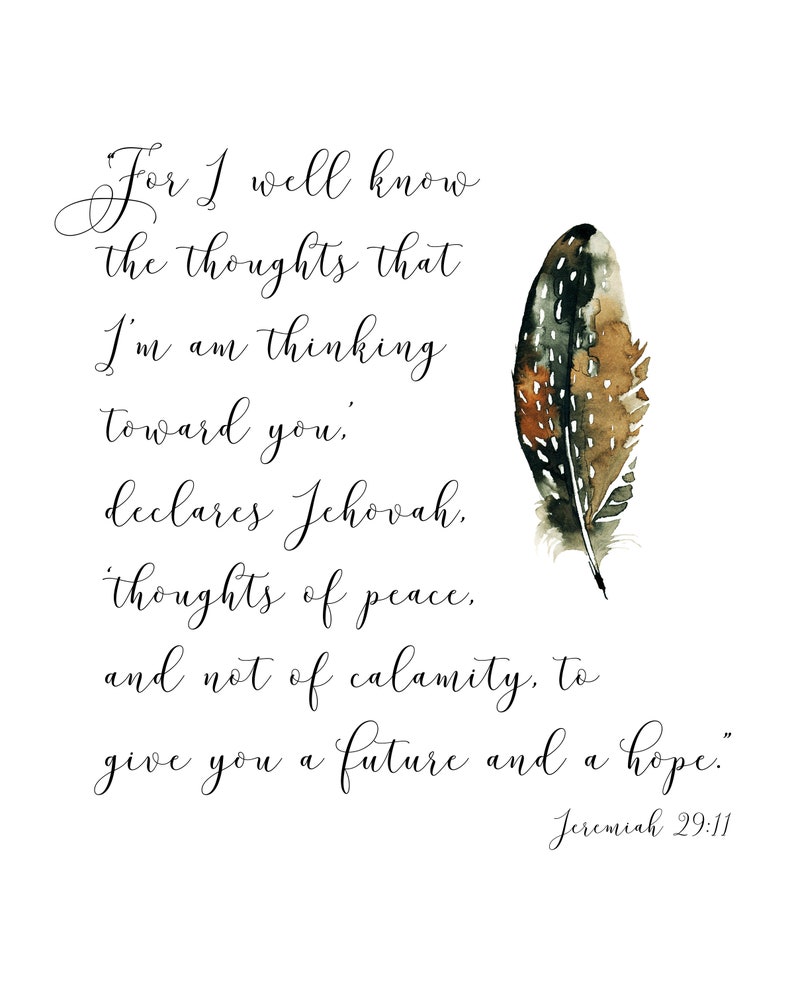 “For I well know
the thoughts that
I’m am thinking
toward you,’
declares Jehovah,
‘thoughts of peace,
and not of calamity, to
give you a future and a hope.”
Jeremiah 29:11